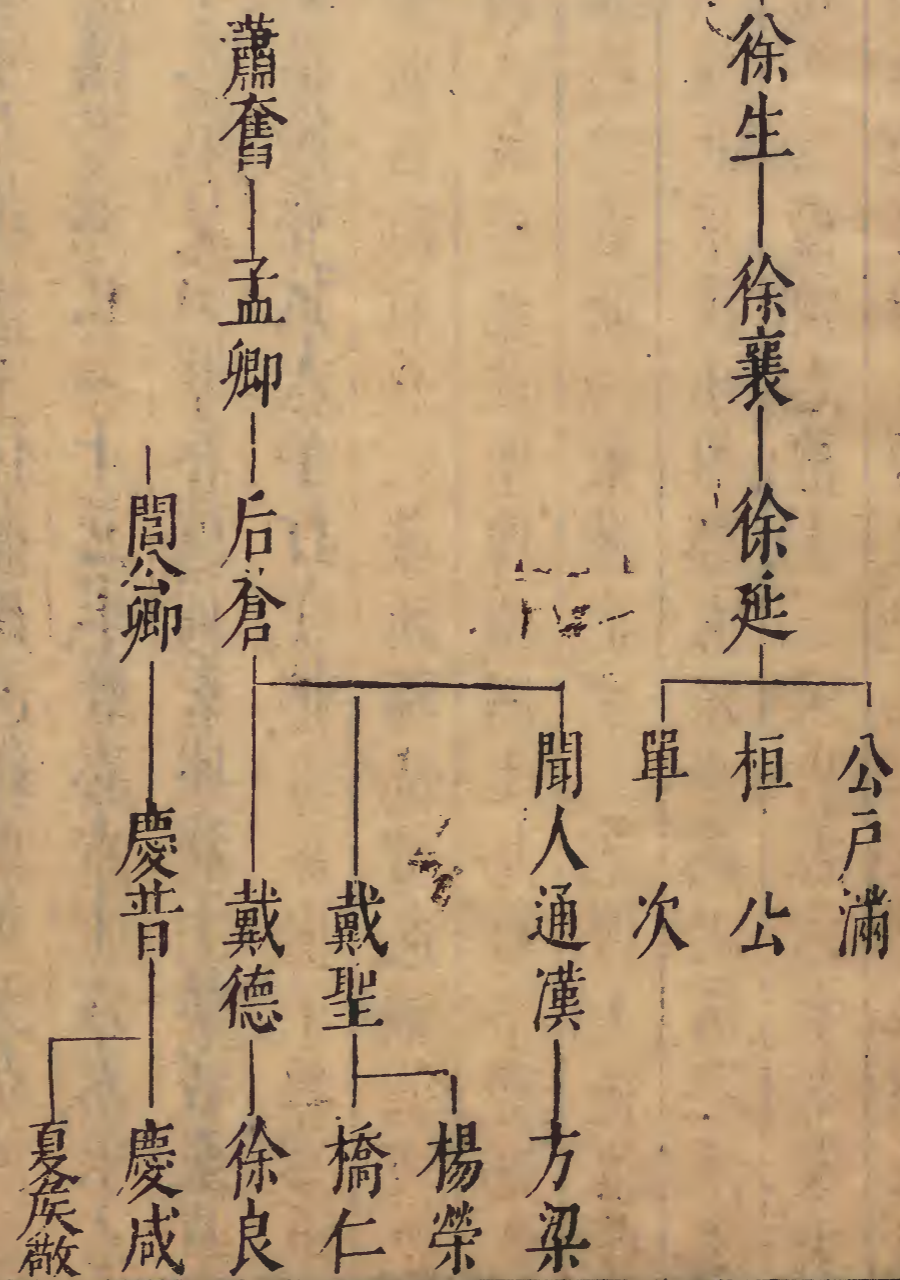 徐生
徐襄
徐延
公戶滿
桓公
單次
蕭奮
孟卿
后倉
聞人通漢
方梁
戴聖
楊榮
橋仁
戴德
徐良
閭公卿
慶普
慶咸
夏侯敬